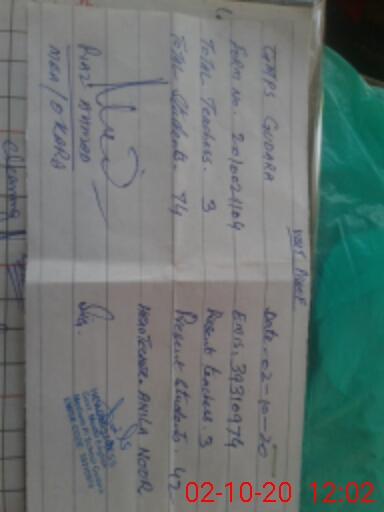 VISIT PROOF
GMPS GUDARA Date - 02-10-20
Form No. 2010021104 EMIS. 39310974
Total Teachers. 3 Present teachers. 3
Total Students. 74 Present Students. 42
Head Teacher. ANILA NOOR
RIAZ AHMED Sig.
MEA / OKARA
02-10-20 12:02